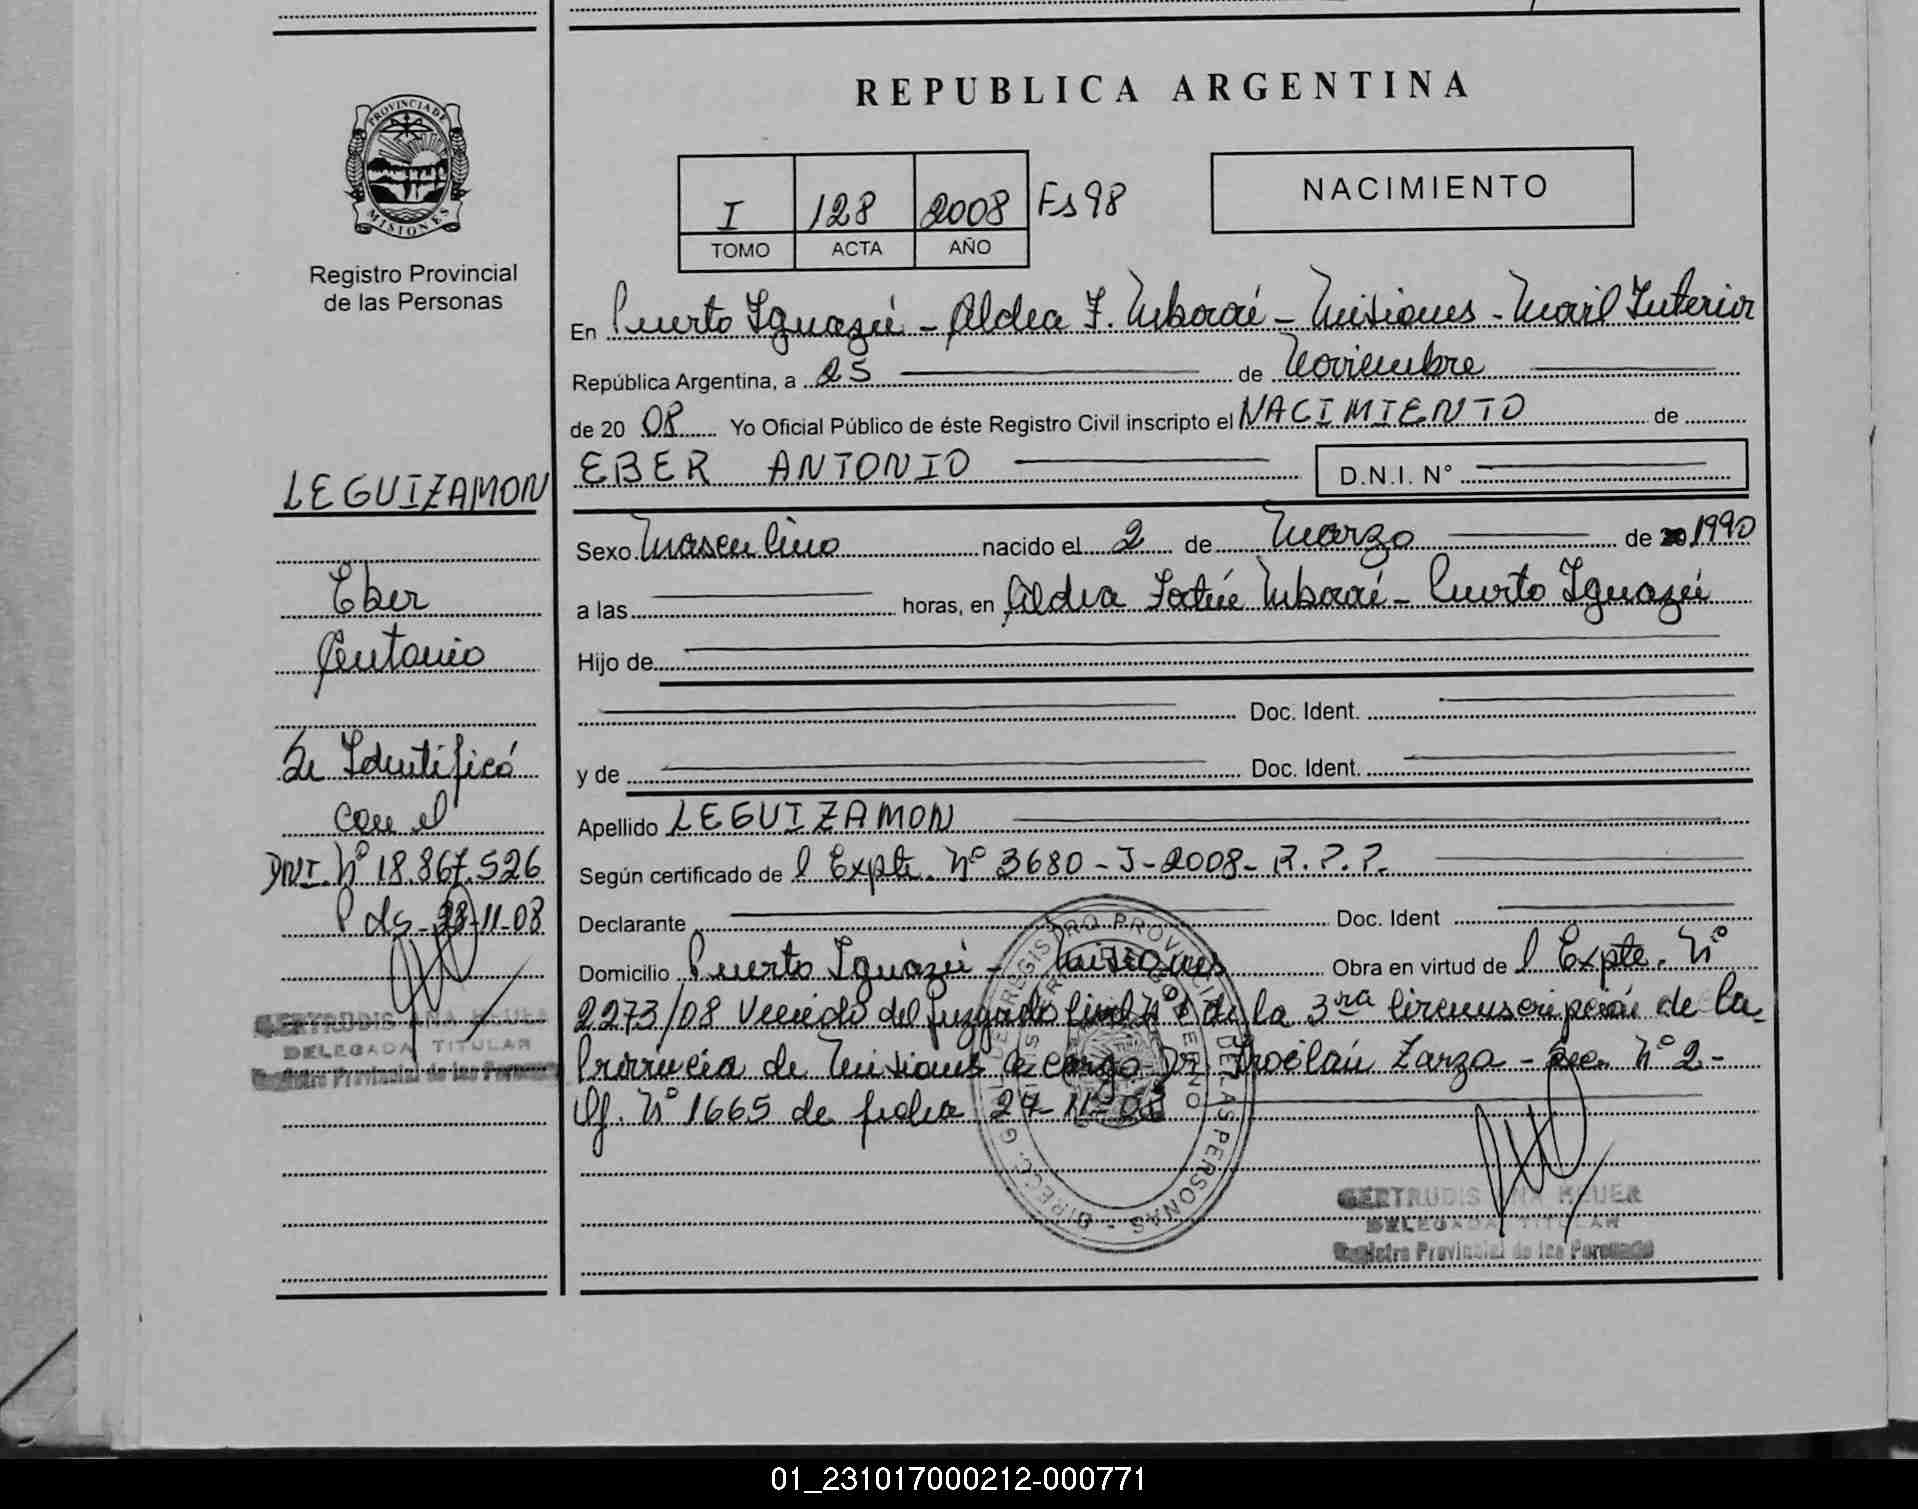 REPUBLICA ARGENTINA
PROVINCIA DE
MISIONES
Registro Provincial
de las Personas
I 128 2008 Fs 98
TOMO ACTA AÑO
NACIMIENTO
En Puerto Iguazú - Aldea F. Mbororé - Misiones - Movil Interior
República Argentina, a 25 de Noviembre
de 20 08 Yo Oficial Público de éste Registro Civil inscripto el NACIMIENTO de
EBER ANTONIO D.N.I. N°
Sexo Masculino nacido el 2 de Marzo de 20 1990
a las horas, en Aldea Fortín Mbororé - Puerto Iguazú
Hijo de
Doc. Ident.
y de Doc. Ident.
Apellido LEGUIZAMON
Según certificado de l Expte. N° 3680-J-2008- R.P.P.
Declarante Doc. Ident
Domicilio Puerto Iguazú - Misiones Obra en virtud de l Expte. N°
2273/08 Venido del Juzgado Civil N° 1 de la 3ra Circunscripción de la
Provincia de Misiones a cargo Dr. Froilán Zarza - Sec. N° 2 -
Of. N° 1665 de fecha 27-11-08
DIREC. GRAL. DE REGISTRO PROVINCIAL DE LAS PERSONAS
GERTRUDIS ANA HEUER
DELEGADA TITULAR
Registro Provincial de las Personas
LEGUIZAMON
Eber
Antonio
Se Identificó
con el
DNI. N° 18.867.526
P ds - 28-11-08
GERTRUDIS ANA HEUER
DELEGADA TITULAR
Registro Provincial de las Personas
01_231017000212-000771